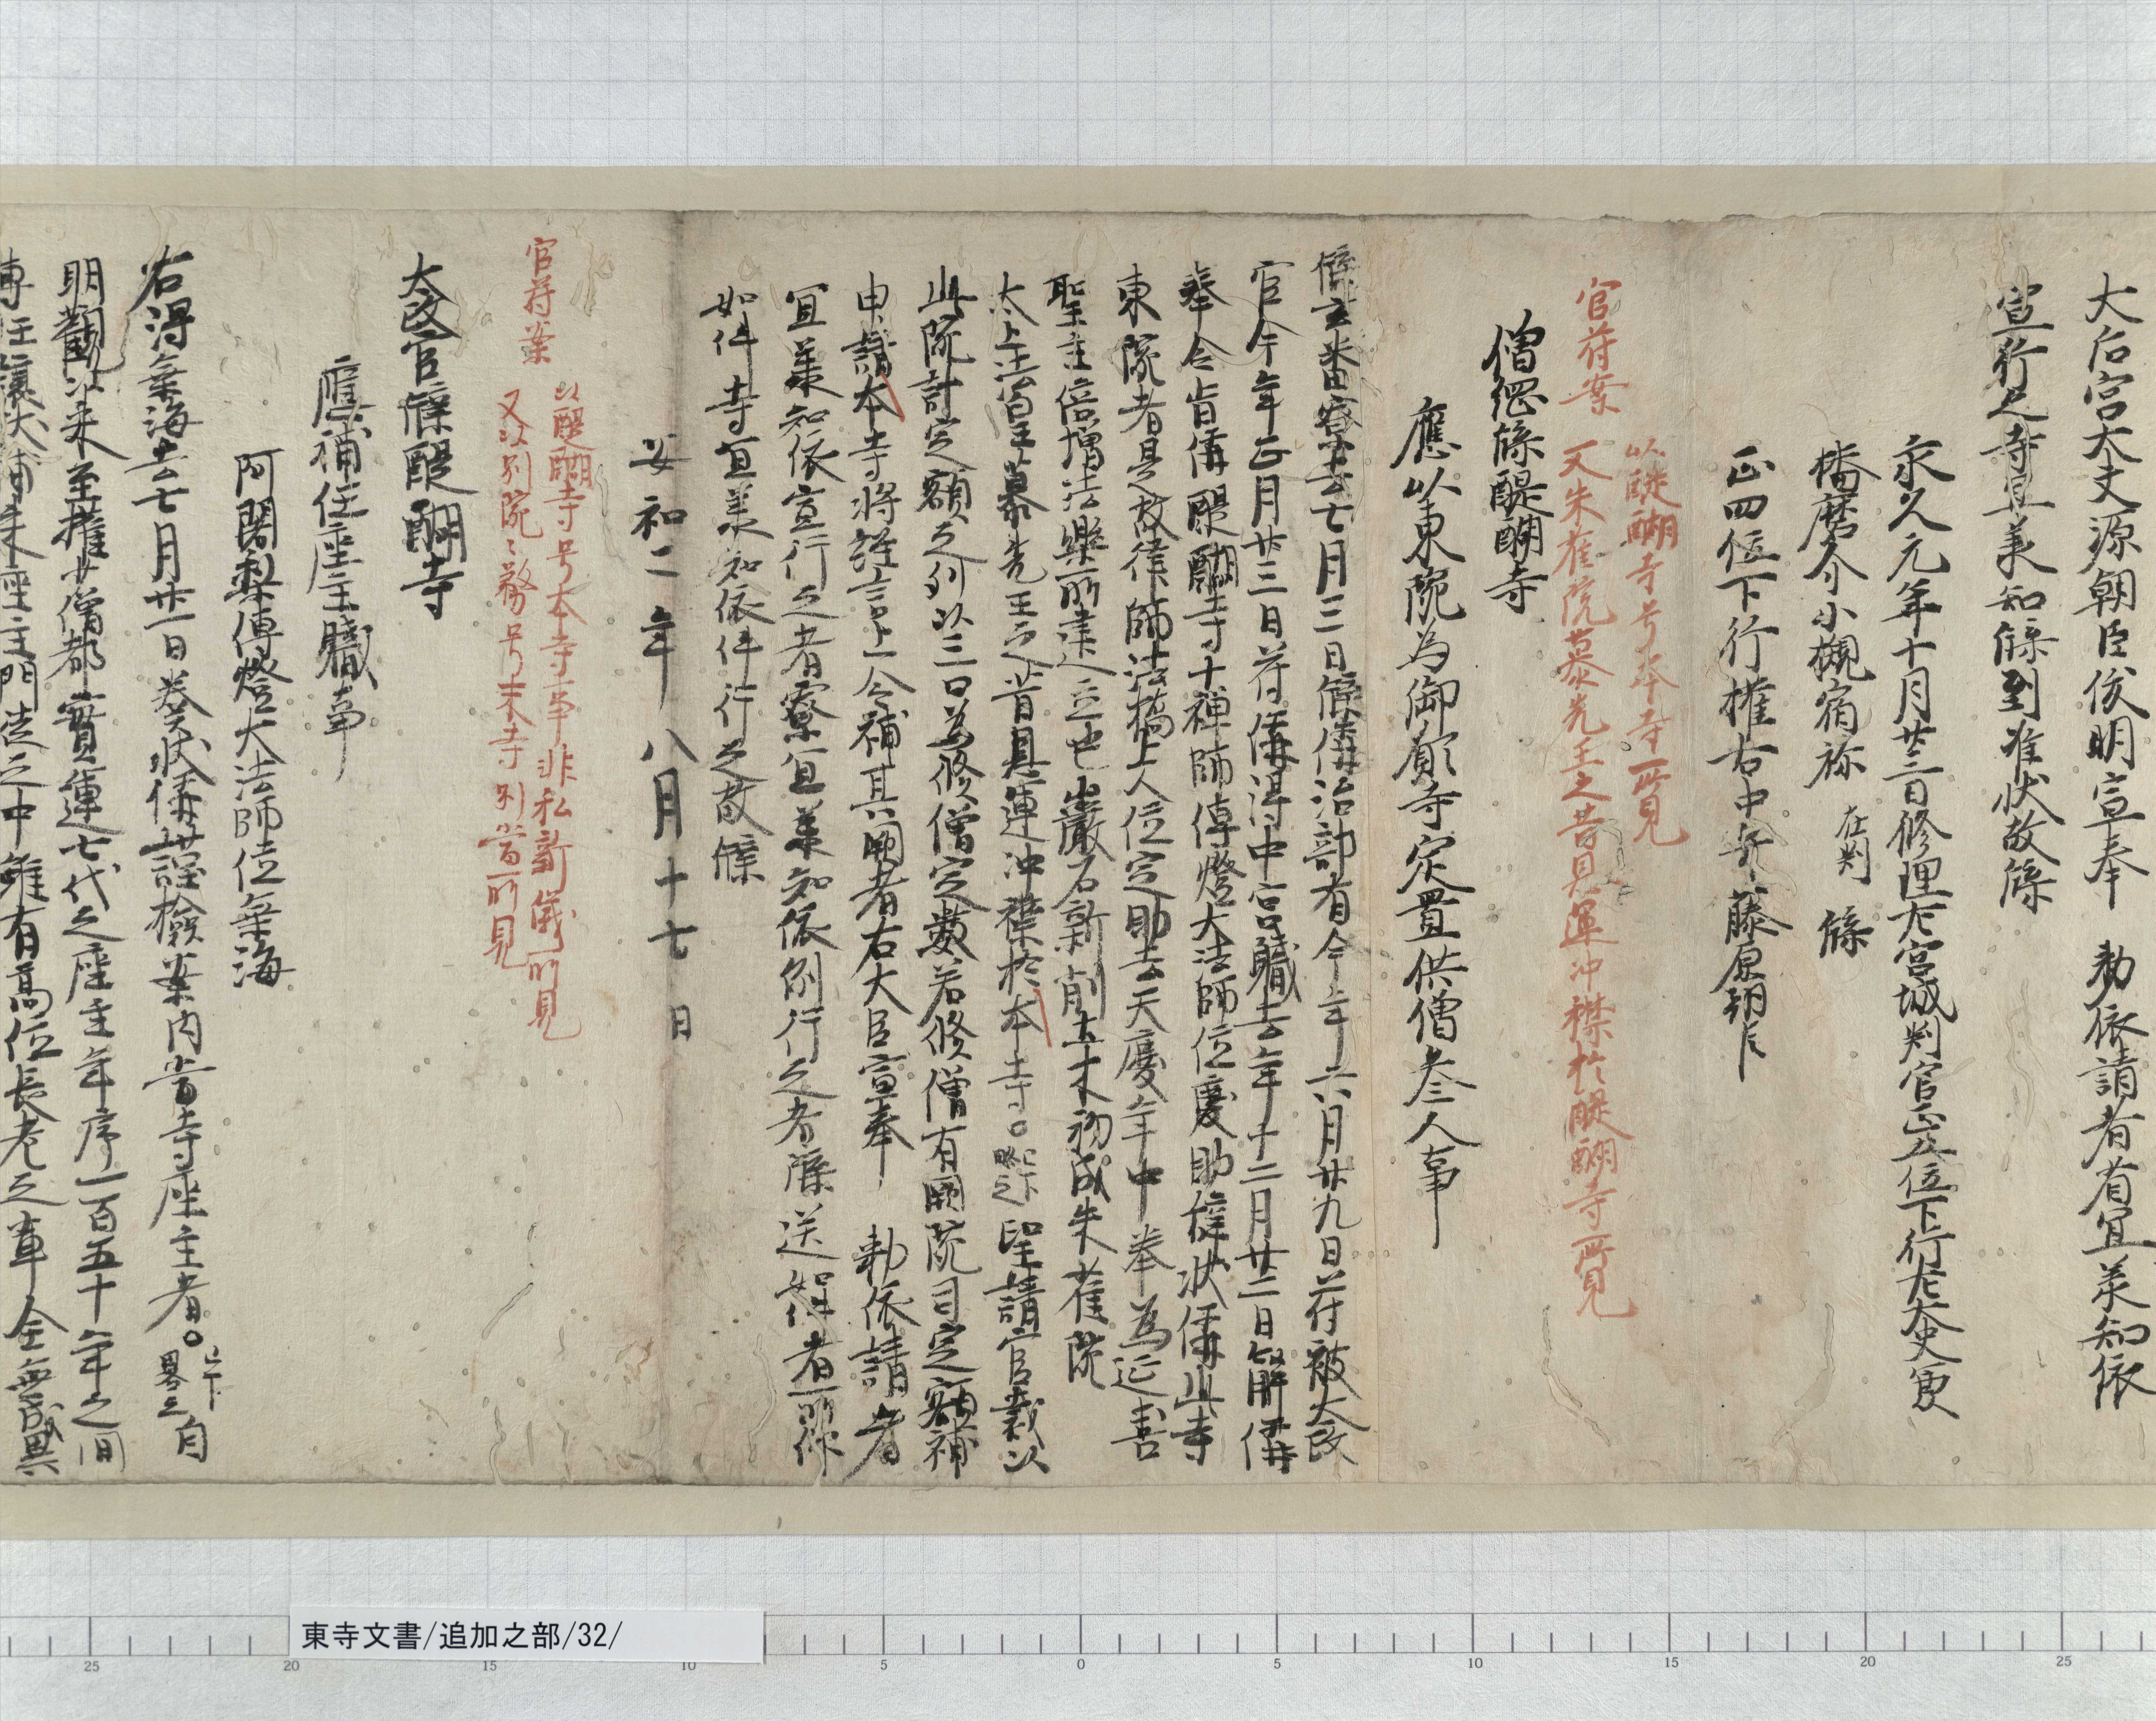 大后宮大夫源朝臣俊明宣奉　勅依請者省宜羕知依
宣行之寺宜羕知牒到准状故牒
永久元年十月廿三日修理左宮城判官正五位下行左大史兼
播磨介小槻宿祢 在判　牒
正四位下行権右中弁藤原朝臣
官苻案　以醍醐寺号本寺所見
又朱雀院慕先王之昔具運冲襟於醍醐寺所見
僧綱牒醍醐寺
應以東院為御願寺定置供僧叁人事
牒玄蕃寮去七月三日牒偁治部省今年六月廿九日苻被太政
官今年正月廿三日苻偁得中宮職去年十二月廿二日解偁
奉令旨偁醍醐寺十禅師傳燈大法師位慶助撻状偁此寺
東院者是故律師法橋上人位定助去天慶年中奉為延喜
聖主倍増法樂所建立也巌石新削土木初成朱雀院
太上法皇慕先王之昔具運冲襟於本寺。已下略之望請官裁以
此院計定額之列以三口為修僧定數若修僧有闕院司定額補
申請本寺将經言上令補其闕者右大臣宣奉　勅依請者
宜羕知依宣行之者寮宜羕知依例行之者牒送如件者所仰
如件寺宜羕知依件行之故牒
安和二年八月十七日
官苻案　以醍醐寺号本寺事非私新儀所見
又以別院々務号末寺別當所見
太政官牒醍醐寺
應補任座主職事
阿闍梨傳燈大法師位乗海
右得乗海去七月廿一日奏状偁謹檢案内當寺座主者。已下略之自
明觀以来至権少僧都實運七代之座主年序一百五十年之間
専任譲大補来座主門徒之中雖有高位長老之輩全無咸異
東寺文書/追加之部/32/
25　20　15　10　5　0　5　10　15　20　25